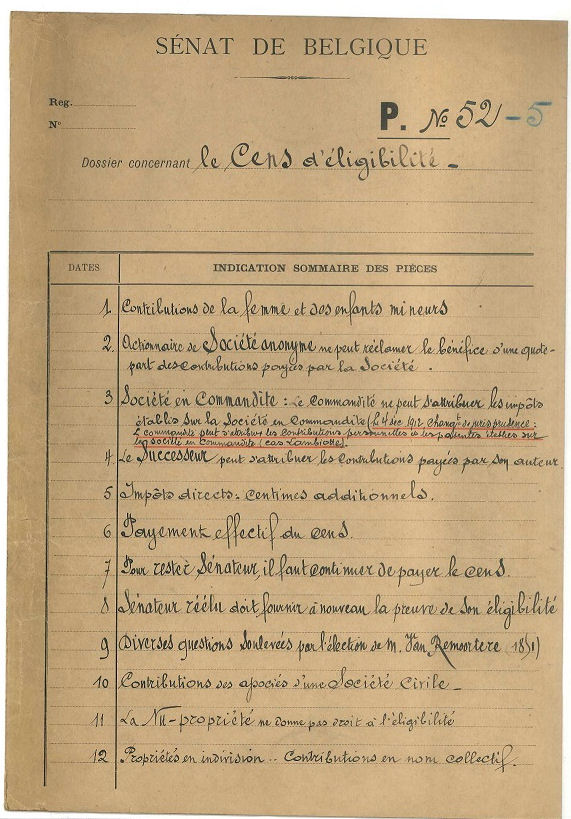 SÉNAT DE BELGIQUE
Reg.
N°
P. No 52-5
Dossier concernant le Cens d'éligibilité –
DATES INDICATION SOMMAIRE DES PIÈCES
1 Contributions de la femme et des enfants mineurs
2. Actionnaire de Société anonyme ne peut réclamer le bénéfice d'une quote-
part des contributions payées par la Société.
3 Société en Commandite : Le Commandité ne peut s'attribuer les impôts
établis sur la Société en Commandite (le 4 déc 1912 changt de jurisprudence :
le commandité peut s'attribuer les contributions personnelles et les patentes établies sur
la société en commandite (cas Lambiotte).
4. Le Successeur peut s'attribuer les contributions payées par son auteur
5 Impôts directs : centimes additionnels.
6 Payement effectif du cens.
7 Pour rester Sénateur, il faut continuer de payer le cens.
8 Sénateur réélu doit fournir à nouveau la preuve de son éligibilité
9 Diverses questions soulevées par l'élection de M. Van Remoortere (1851)
10 Contributions des associés d'une Société Civile –
11 La Nu-propriété ne donne pas droit à l'éligibilité
12 Propriétés en indivision .. Contributions en nom collectif.